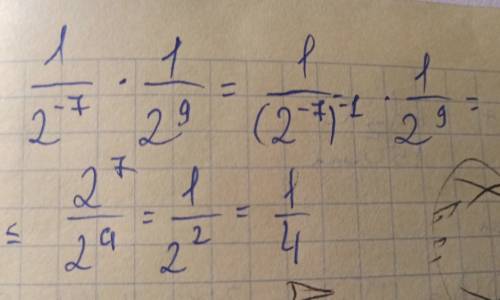 1/2^-7 · 1/2^9 = 1/(2^-7)^-1 · 1/2^9 =
= 2^7/2^9 = 1/2^2 = 1/4